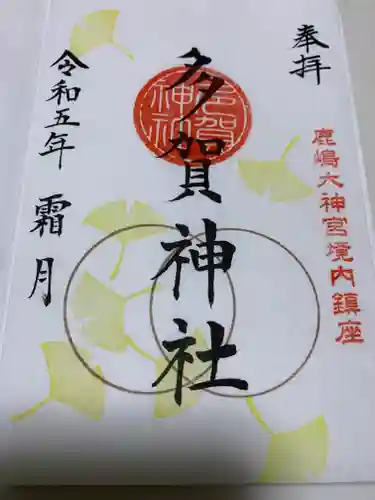 奉拝
鹿嶋大神宮境内鎮座
多賀神社
多賀神社
令和五年 霜月